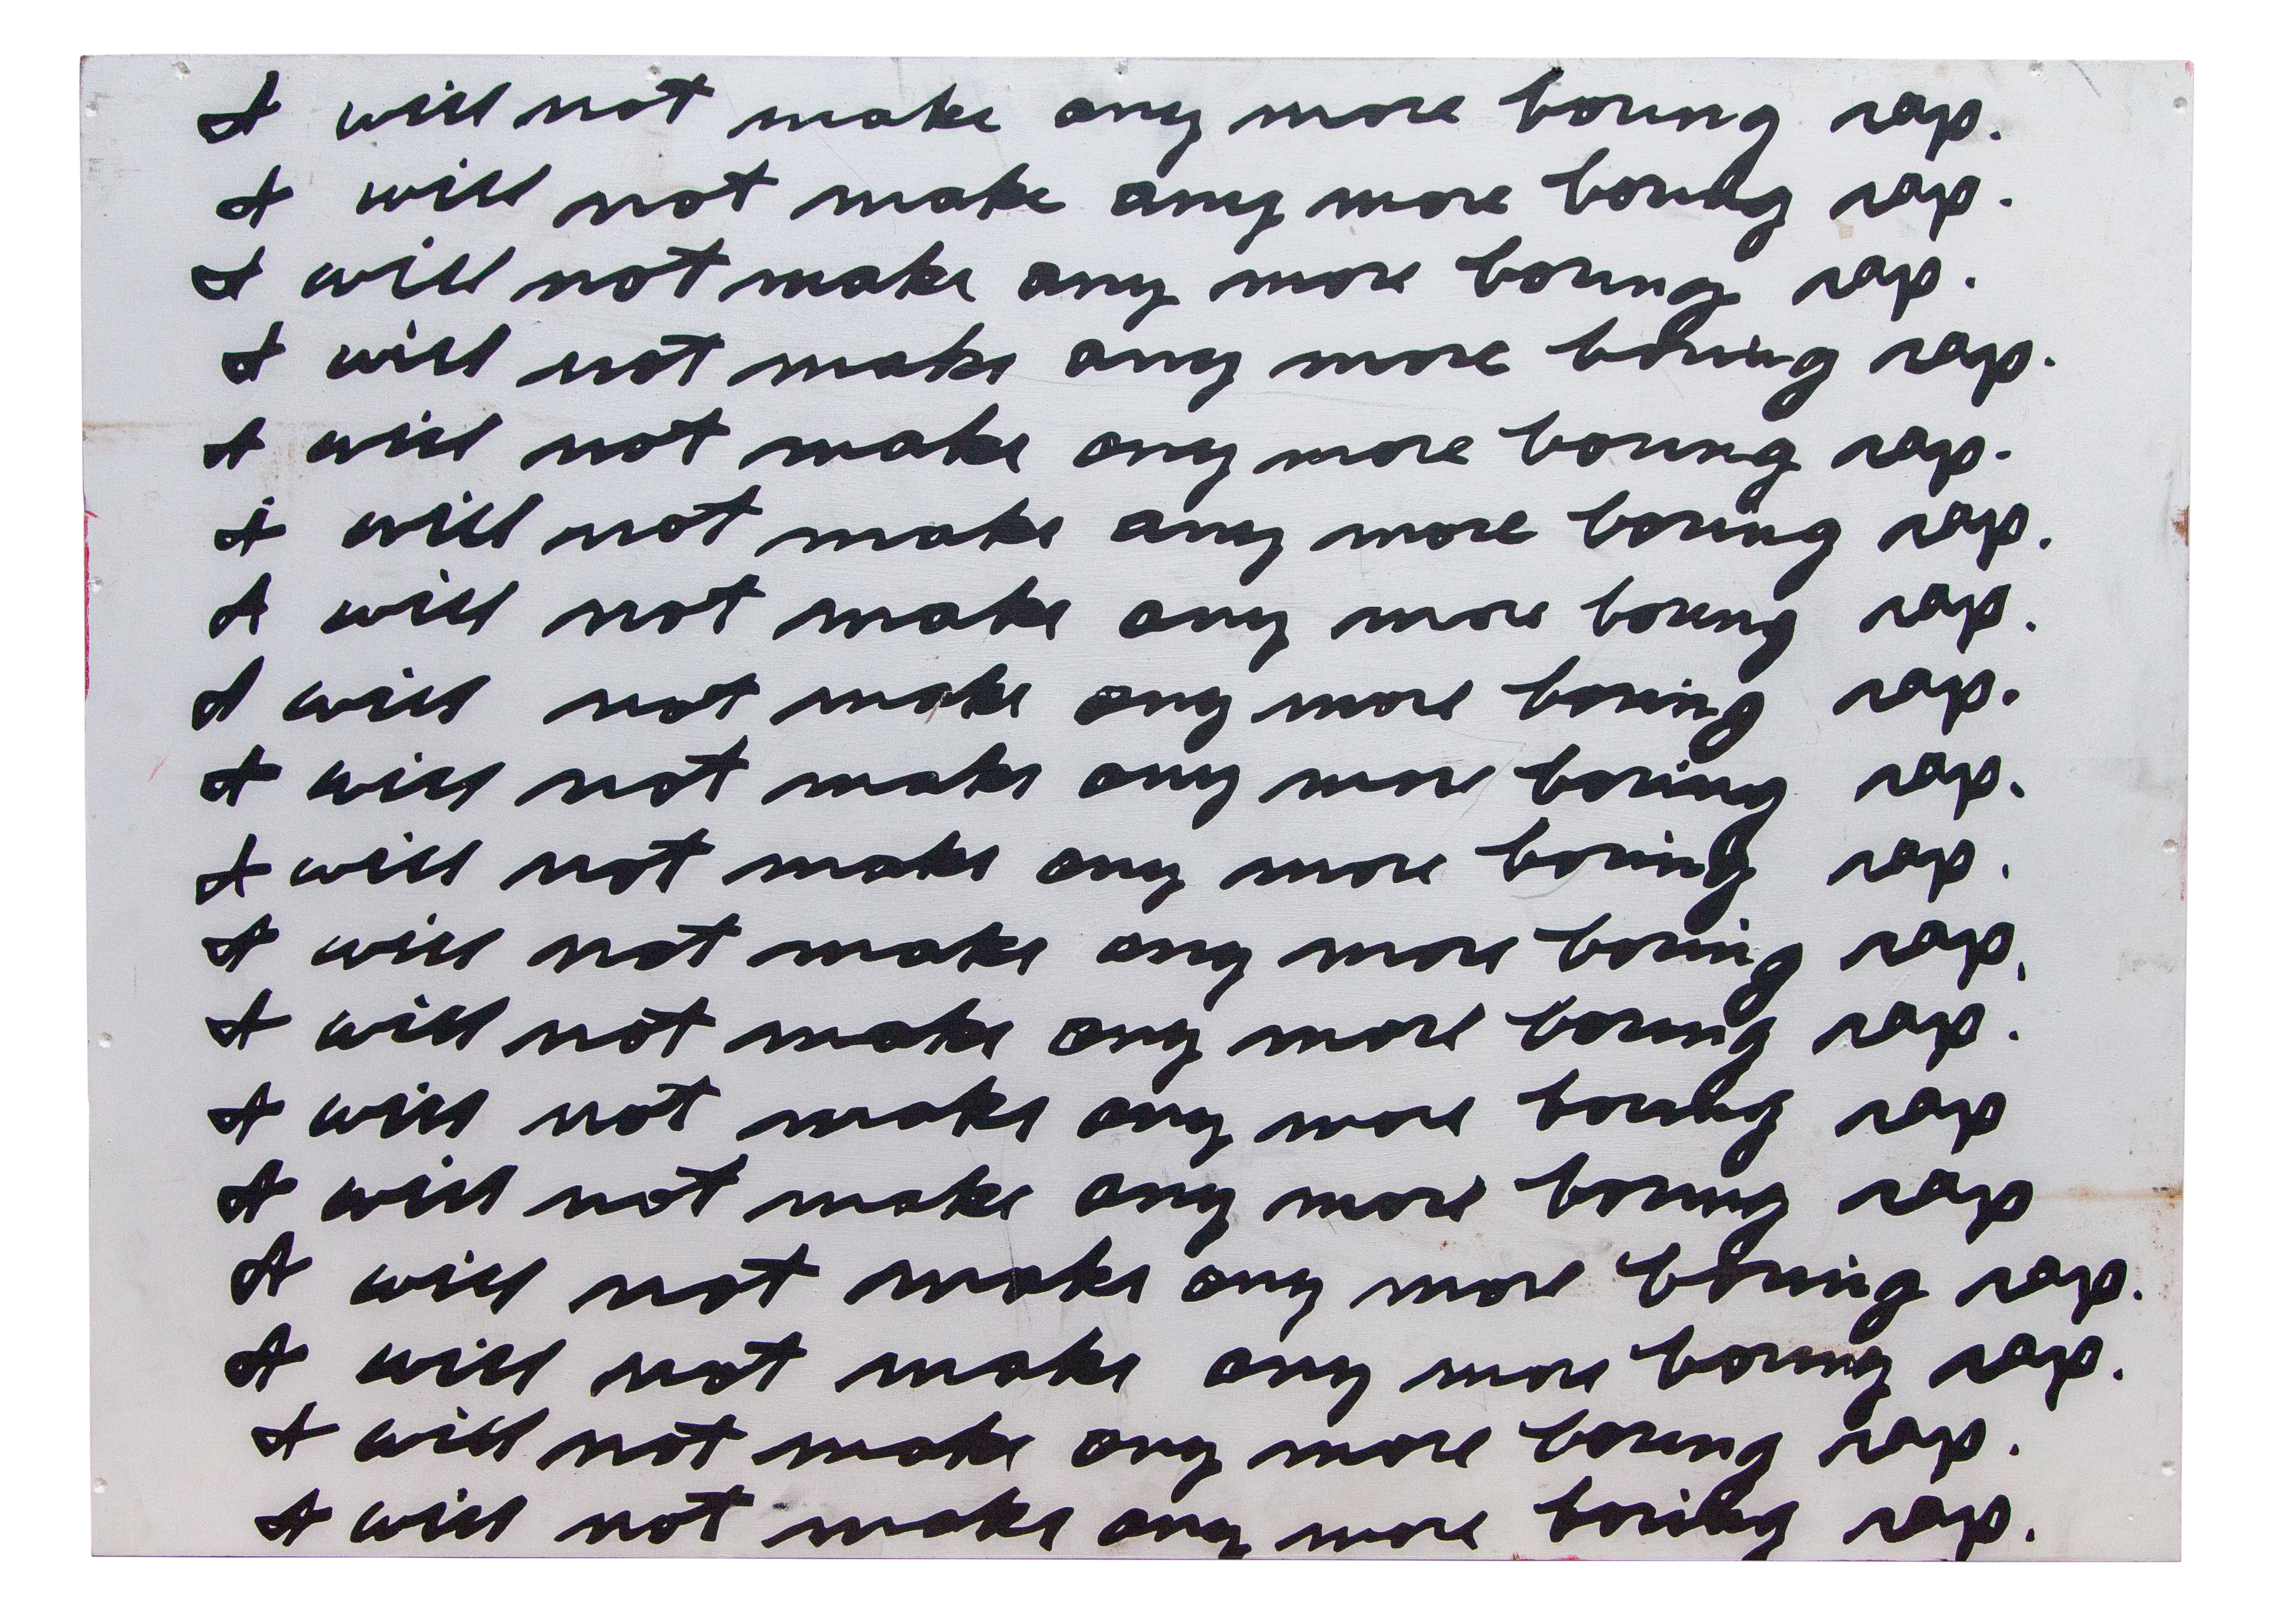 I will not make any more boring rap.
I will not make any more boring rap.
I will not make any more boring rap.
I will not make any more boring rap.
I will not make any more boring rap.
I will not make any more boring rap.
I will not make any more boring rap.
I will not make any more boring rap.
I will not make any more boring rap.
I will not make any more boring rap.
I will not make any more boring rap.
I will not make any more boring rap.
I will not make any more boring rap
I will not make any more boring rap
I will not make any more boring rap.
I will not make any more boring rap.
I will not make any more boring rap.
I will not make any more boring rap.